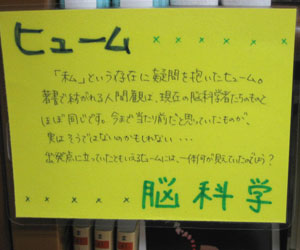 ヒューム × × × × × × ×
「私」という存在に疑問を抱いたヒューム。
著書で紡がれる人間観は、現在の脳科学者たちのものと
ほぼ同じです。今まで当たり前だと思っていたものが、
実はそうではないのかもしれない・・・
出発点に立っていたともいえるヒュームには、一体何が見えていたのでしょう?
× × × × × 脳科学